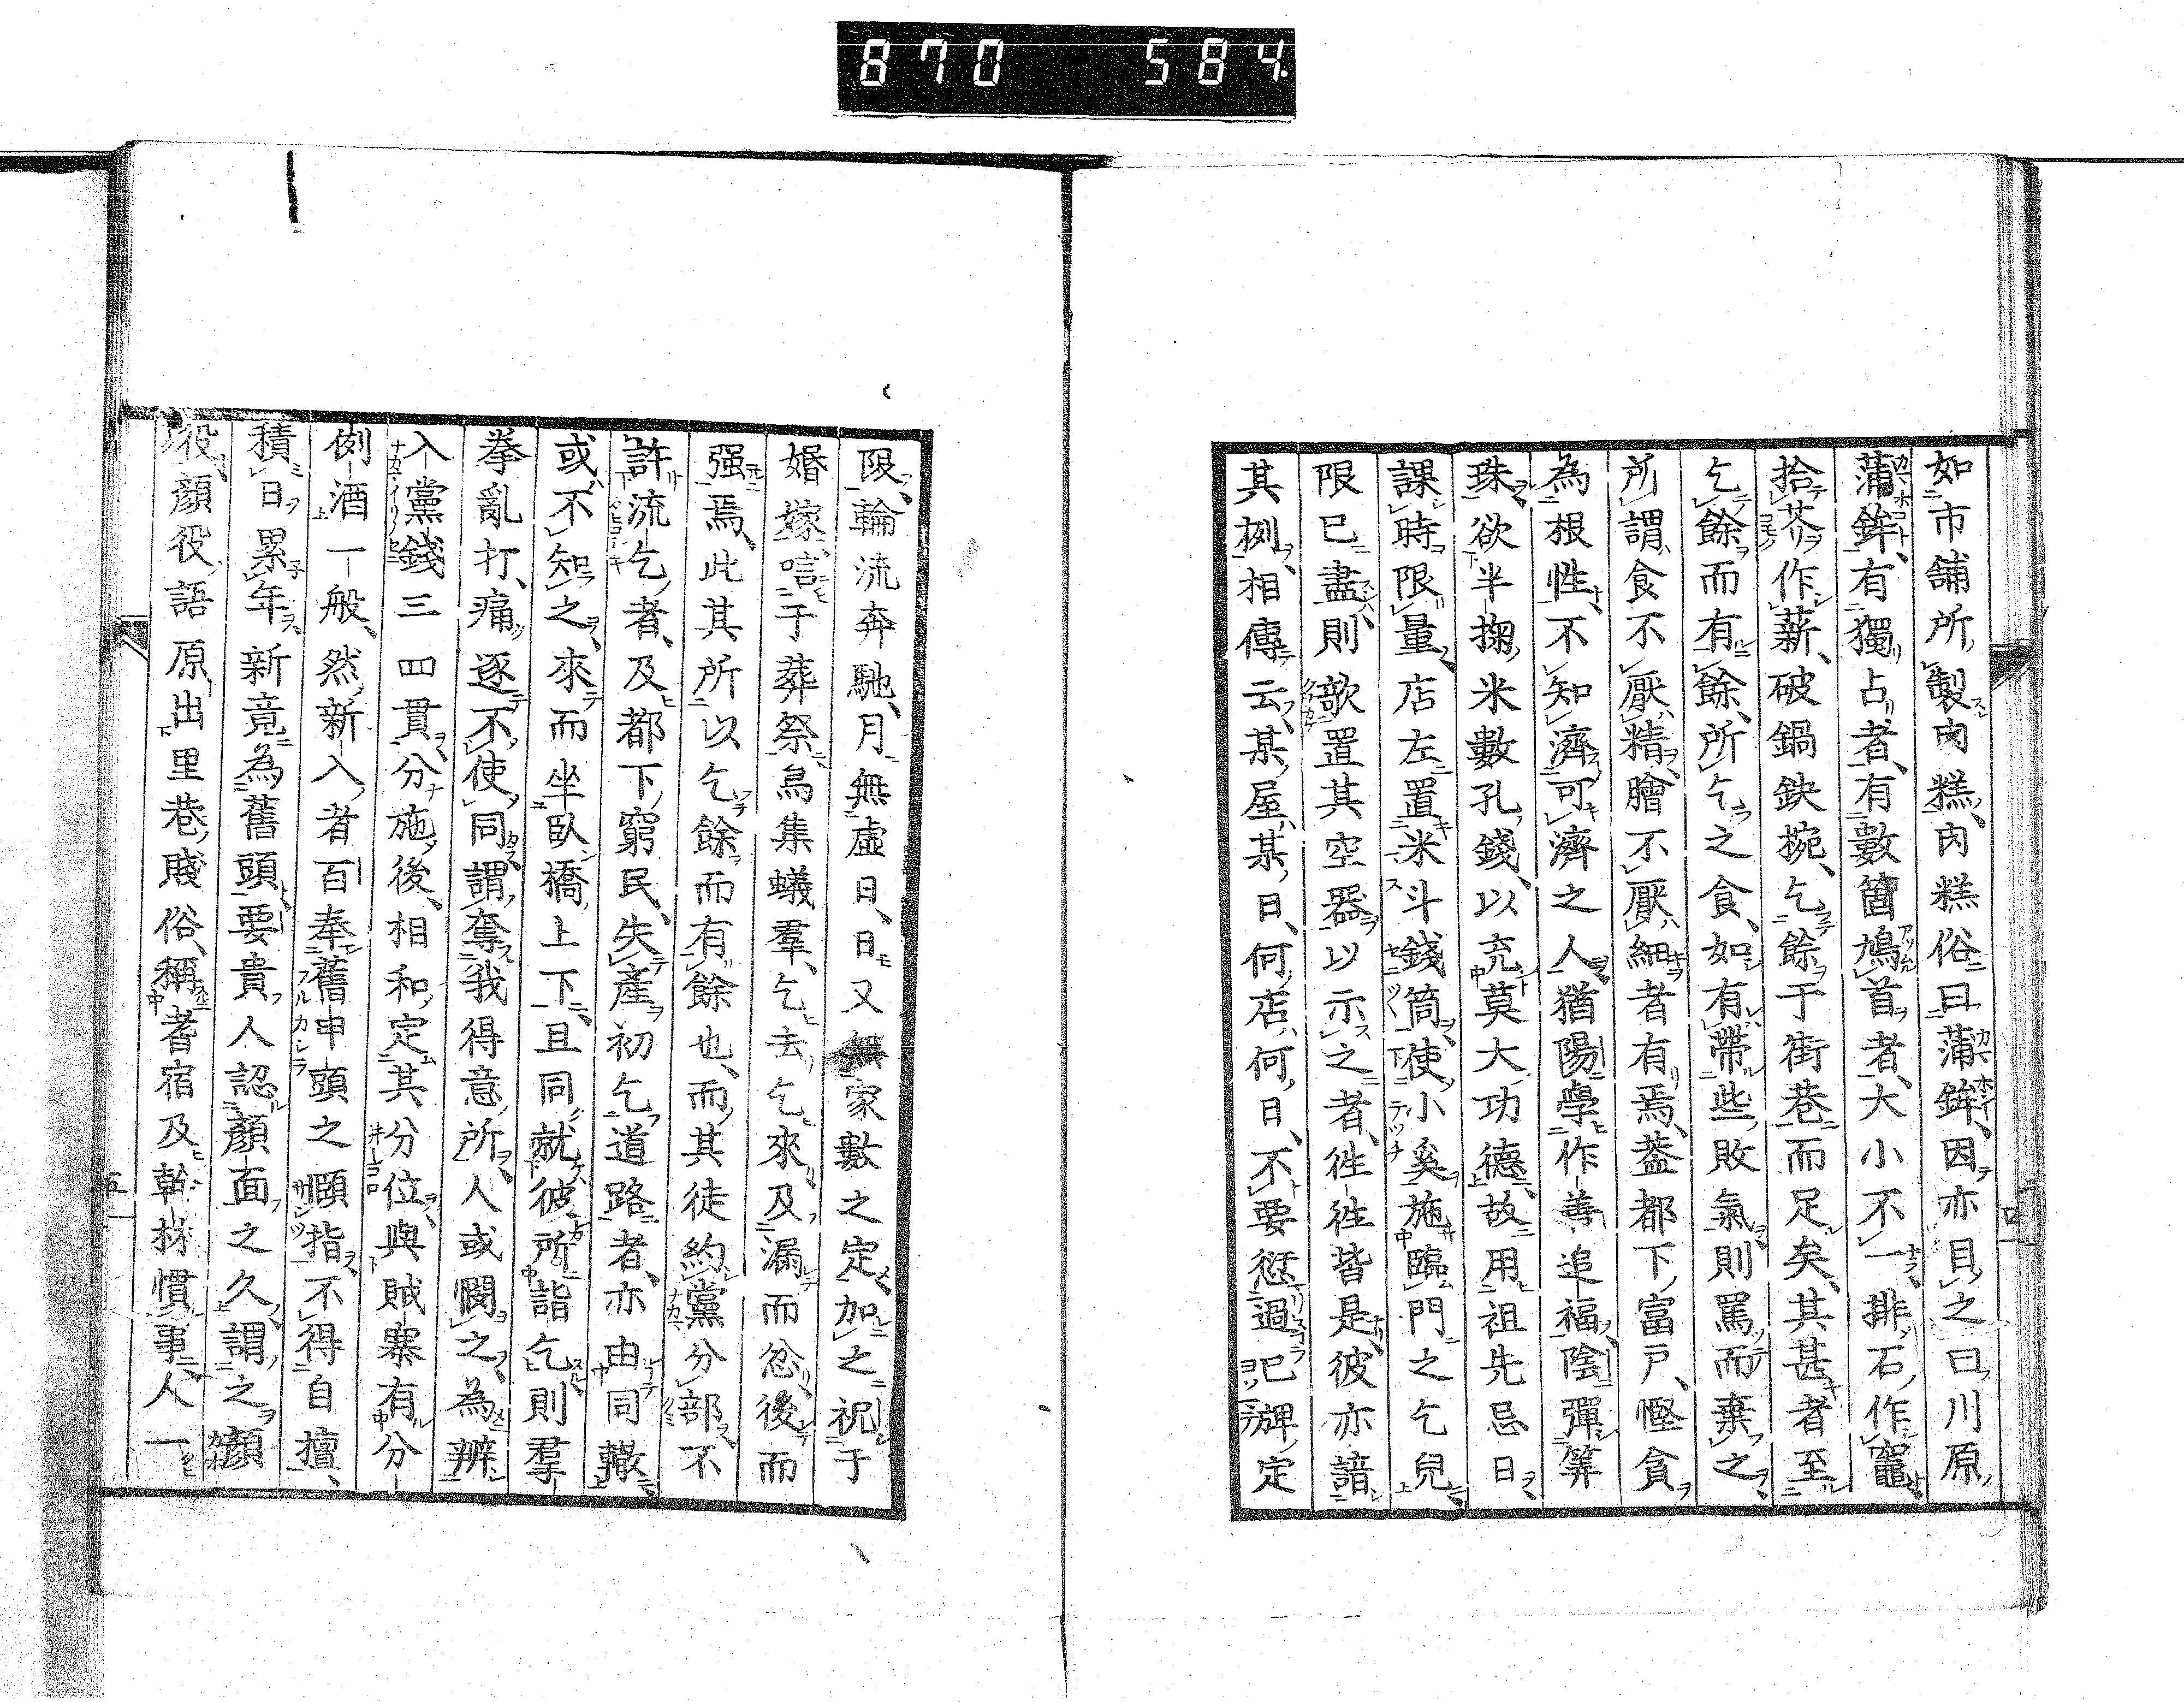 870 584
如市舗所製肉糕肉糕俗曰蒲鉾因亦目之曰川原
蒲鉾有獨占者有數箇鳩首者大小不一排石作竈
拾芥作薪破鍋鈌椀乞餘于街巷而足矣其甚者至
乞餘而有餘所乞之食如有帶些敗氣則罵而棄之
所謂食不厭精膾不厭細者有焉葢都下富戸慳貪
為根性不知濟可濟之人猶陽學作善追福陰彈筭
珠欲半掬米數孔錢以充莫大功德故用祖先忌日
課時限量店左置米斗錢筒使小奚施臨門之乞兒
限已盡則欹置其空器以示之者徃徃皆是彼亦諳
其例相傳云某屋某日何店何日不要愆過巳牌定
限輪流奔馳月無虛日日又無家數之定加之祝于
婚嫁唁于葬祭烏集蟻羣乞去乞來及漏而忿後而
强焉此其所以乞餘而有餘也而其徒約黨分部不
許流乞者及都下窮民失產初乞道路者亦由同轍
或不知之來而坐臥橋上下且同就彼所詣乞則羣
拳亂打痛逐不使同謂奪我得意所人或憫之為辨
入黨錢三四貫分施後相和定其分位與賊寨有分
例酒一般然新入者百奉舊申頭之頤指不得自擅
積日累年新竟為舊頭要貴人認顏面之久謂之顏
役顏役語原出里巷賤俗稱耆宿及幹材慣事人一
四
五